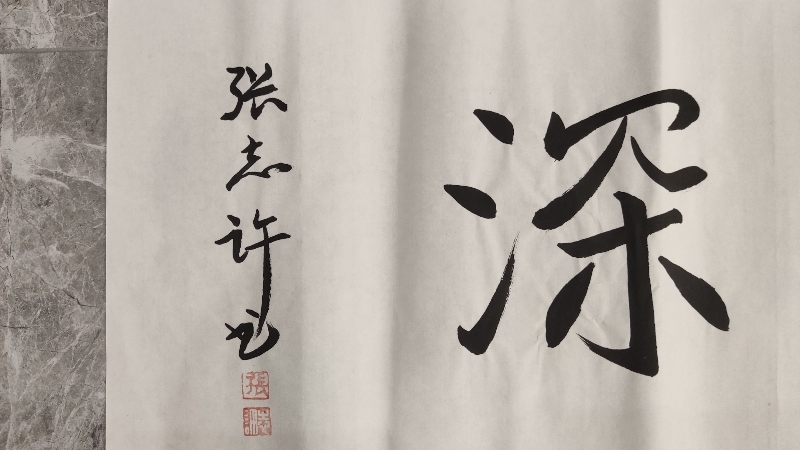 深
张志许书
張